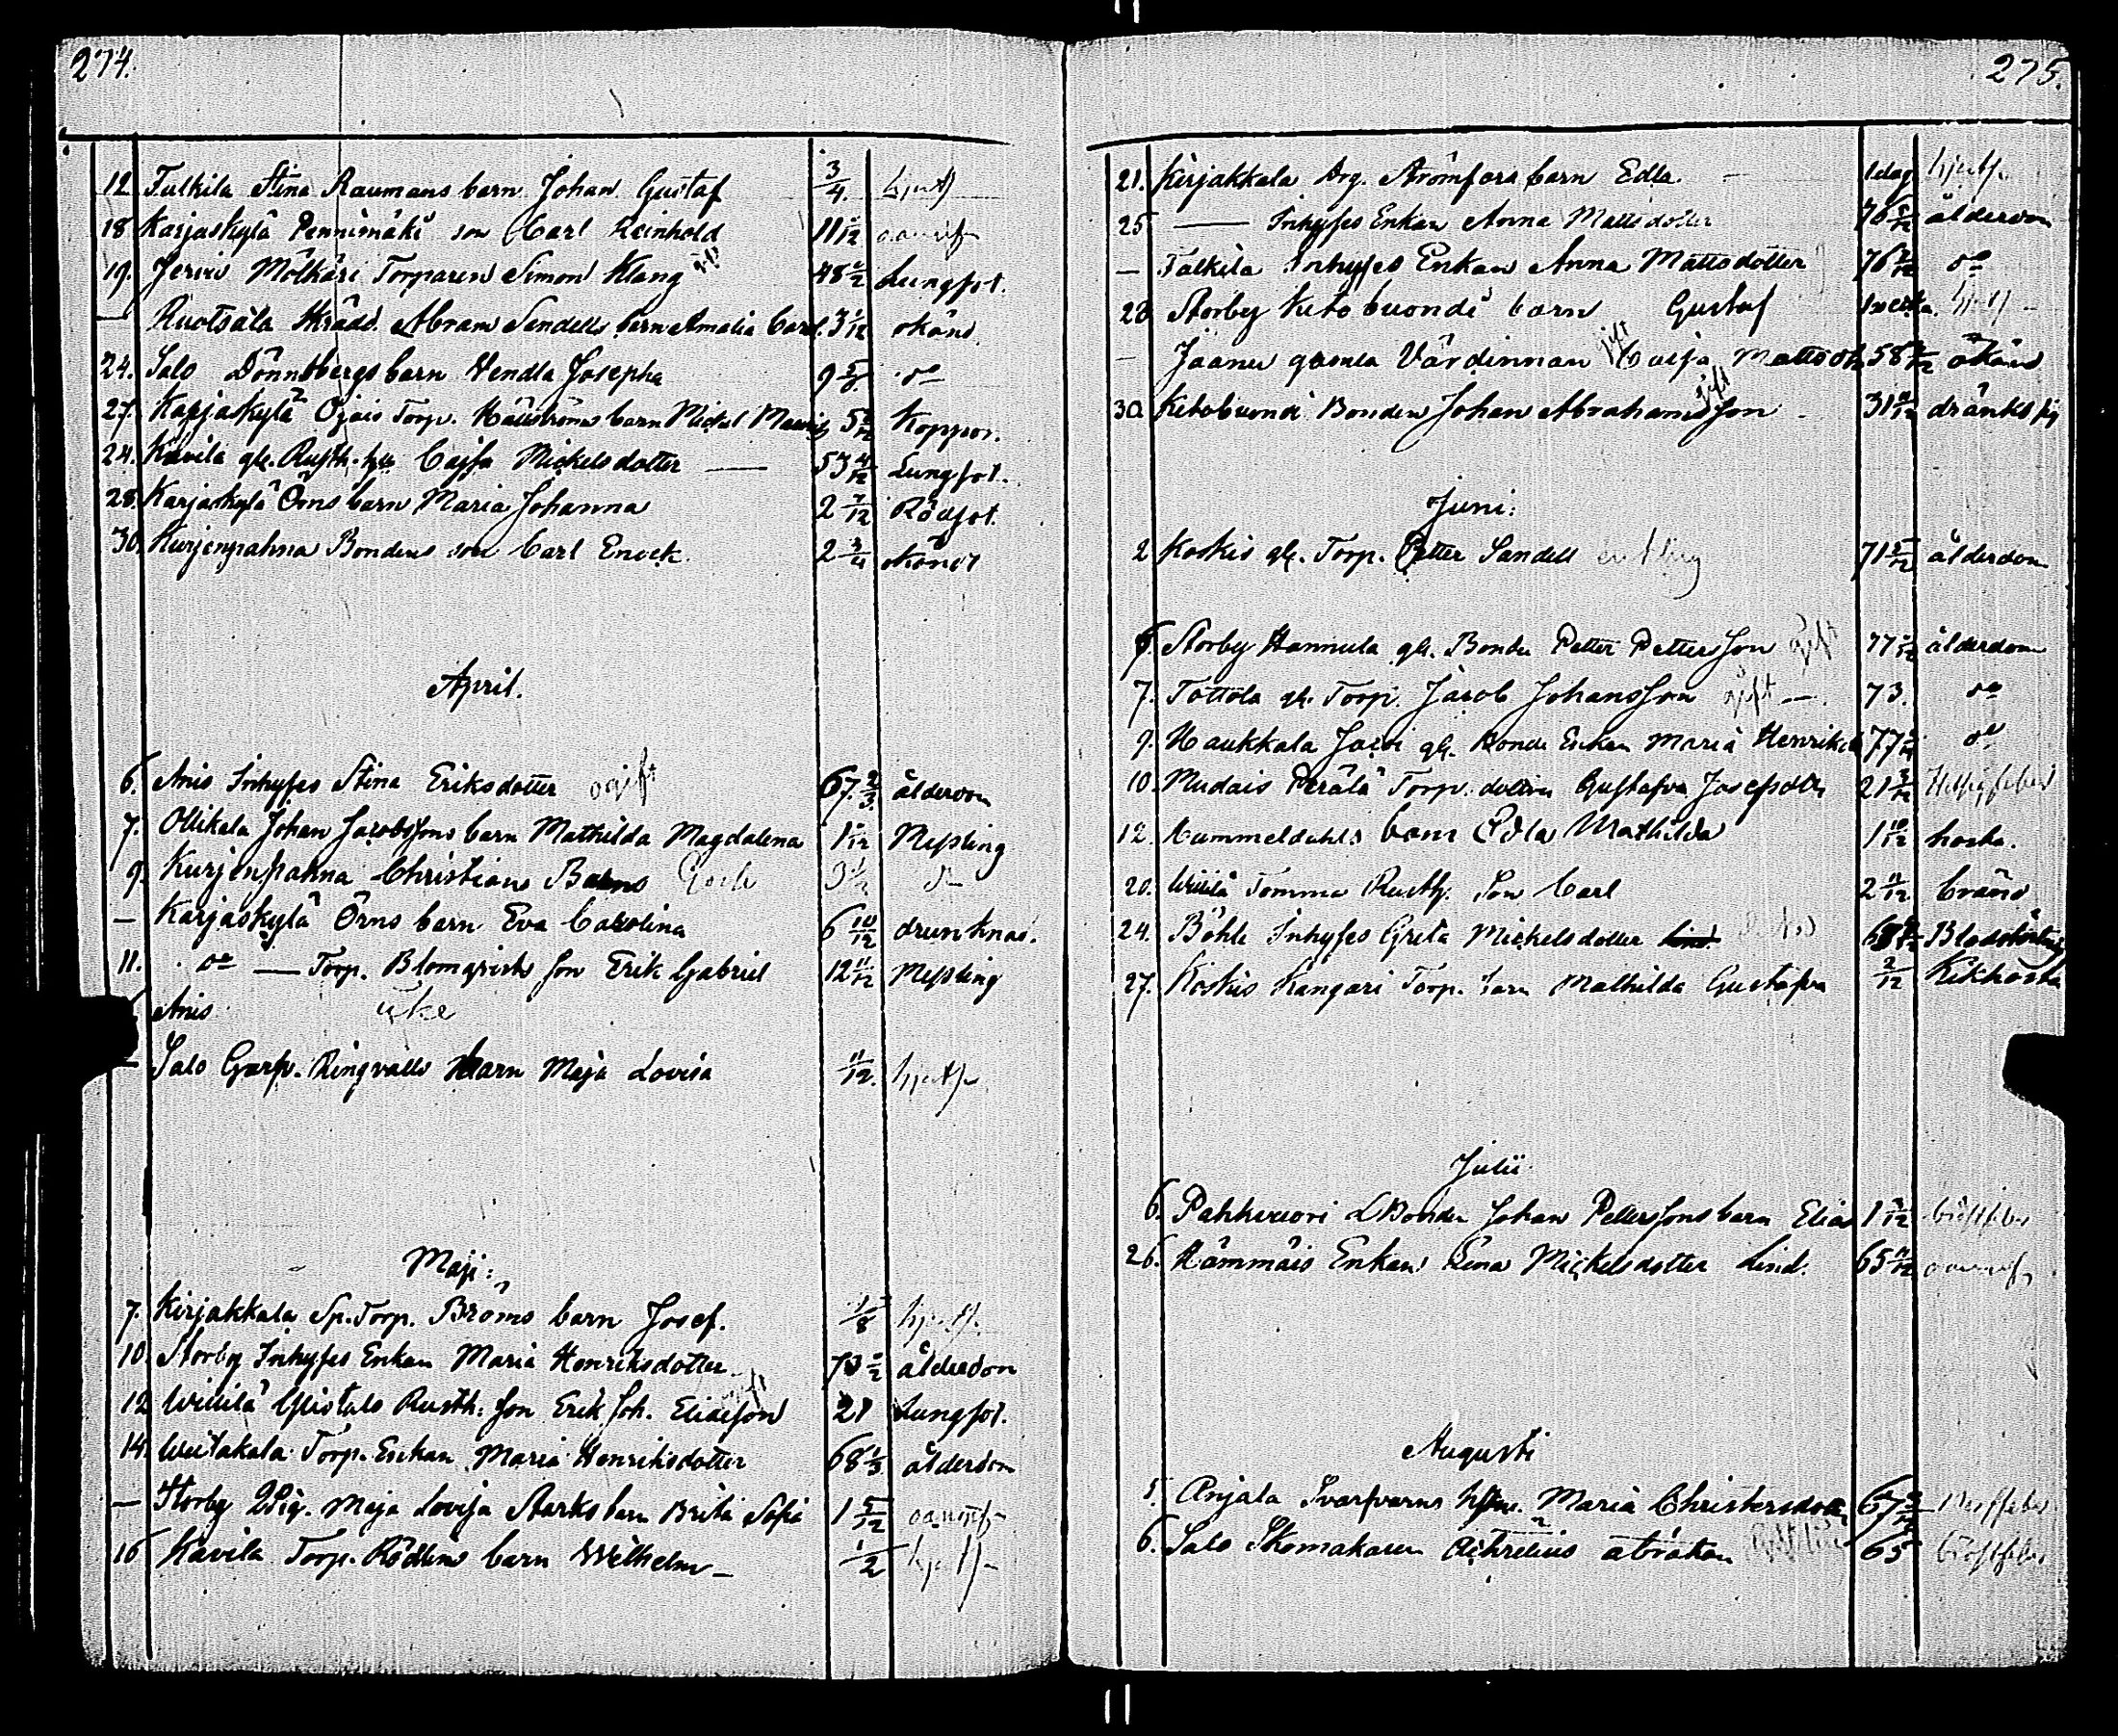 274.
12. Tulkila Stina Raumans barn Johan Gustaf 3/4.
18 Karjaskylä Pennimäki son Carl Reinhold 11 1/12
19. Jervi Mölkäri Torparen Simon Klang gift 48 1/2 Lungsot.
— Ruotsala Skrädd. Abram Sendells barn Amalia Carol. 3 1/12 okänd.
24. Salo Dönnsbergs barn Hendla Josepha 9 do
27. Karjaskylä Ojais Torp. barn Mickel 5 Koppor.
24. Kavila gl. Rusth. Cajsa Mickelsdotter — 53 4/12 Lungsot.
28. Karjaskylä Örns barn Maria Johanna 2 7/12 Rödsot.
30. Kurjenpahna Bondens son Carl Enock 2 3/4 okänd
April.
6. Anis Inhyses Stina Eriksdotter ogift 67 2/3. ålderdom
7. Ollikala Johan Jacobssons barn Mathilda Magdalena 1 Messling
9. Kurjenpahna Christians Barns 3 1/2 do
— Karjaskylä Örns barn Eva Carolina 6 10/12 drunknad.
11. do — Torp. Blomqvists son Erik Gabriel 12 11/12 Messling
Anis icke
— Salo Garfv. Ringvalls barn Maja Lovisa 11/12.
Maji:
7. Kirjakkala Sp. Torp. Bröms barn Josef. 1/8
10. Storby Inhyses Enkan Maria Henriksdotter 73 1/2 ålderdom
12 Willilä Yllistalo Rusth. son Erik Joh. Eliaeson gift 21 Lungsot.
14. Torp. Enkan Maria Henriksdotter 68 1/3 ålderdom
— Storby Pig. Maja Lovisa Starks barn Brita Sofia 1 5/12
16 Kavila Torp. Rödlins barn Wilhelm — 1/2
275.
21. Kirjakkala Arg. Strömfors barn Edla. — 1 dag
25 — Inhyses Enkan Anna Mattsdotter 76 ålderdom
— Talkila Inhyses Enkan Anna Mattsdotter 76 do
28 Storby Ketobuondi barn Gustaf 1 vecka.
— Jaanu gamla Värdinnan gift Caisa 58 okänd
30. Ketobuondi Bonden Johan Abrahamsson gift 31 dränkt sig
Juni:
2 Koskis gl. Torp. Petter Sandell enkling 71 ålderdom
6. Storby Hannula gl. Bonde Petter Pettersson gift 77 ålderdom
7. Tottola gl. Torp. Jacob Johansson gift —. 73. do
9. Haukkala Jacoi gl. Bonde Enkan Maria 77 do
10. Mudais Perälä Torp. dottren Gustafva 21
12. Hummeldahls barn Edla Mathilda 1 10/12 hosta.
20. Willilä Tomma Rusth. Son Carl 2 11/12 bränd
24. Böhle Inhyses Greta Mickelsdotter Blodstörtng
27. Koskis Kangari Torp. barn Mathilda Gustafva 2/12 Kikhosta
Julii
6. Pahkvuori LBonden Johan Petterssons barn Elias 1 bröstfeber
26. Hämmäis Enkan Lena Mickelsdotter Lind. 65 11/12
Augusti
5. Anjala Svarfvarens Maria Christersdotter 67
6. Salo Skomakaren abrahan 65 Bröstfeber